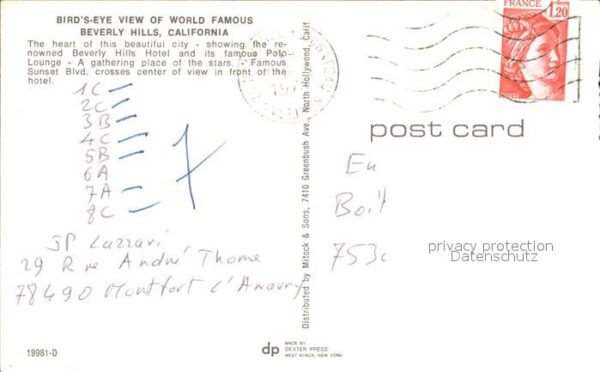 BIRD'S-EYE VIEW OF WORLD FAMOUS
BEVERLY HILLS, CALIFORNIA
The heart of this beautiful city - showing the re-
nowned Beverly Hills Hotel and its famous Polo
Lounge - A gathering place of the stars. - Famous
Sunset Blvd. crosses center of view in front of the
hotel.
1C
2C
3B
4C
5B
6A
7A
8C
7
JP Lazzari
29 Rue André Thome
78490 Montfort l'Amaury
19981-D
Distributed by Mitock & Sons, 7410 Greenbush Ave., North Hollywood, Calif.
dp
MADE BY
DEXTER PRESS
WEST NYACK, NEW YORK
FRANCE
1,20
post card
Eu
Boit
753
privacy protection
Datenschutz